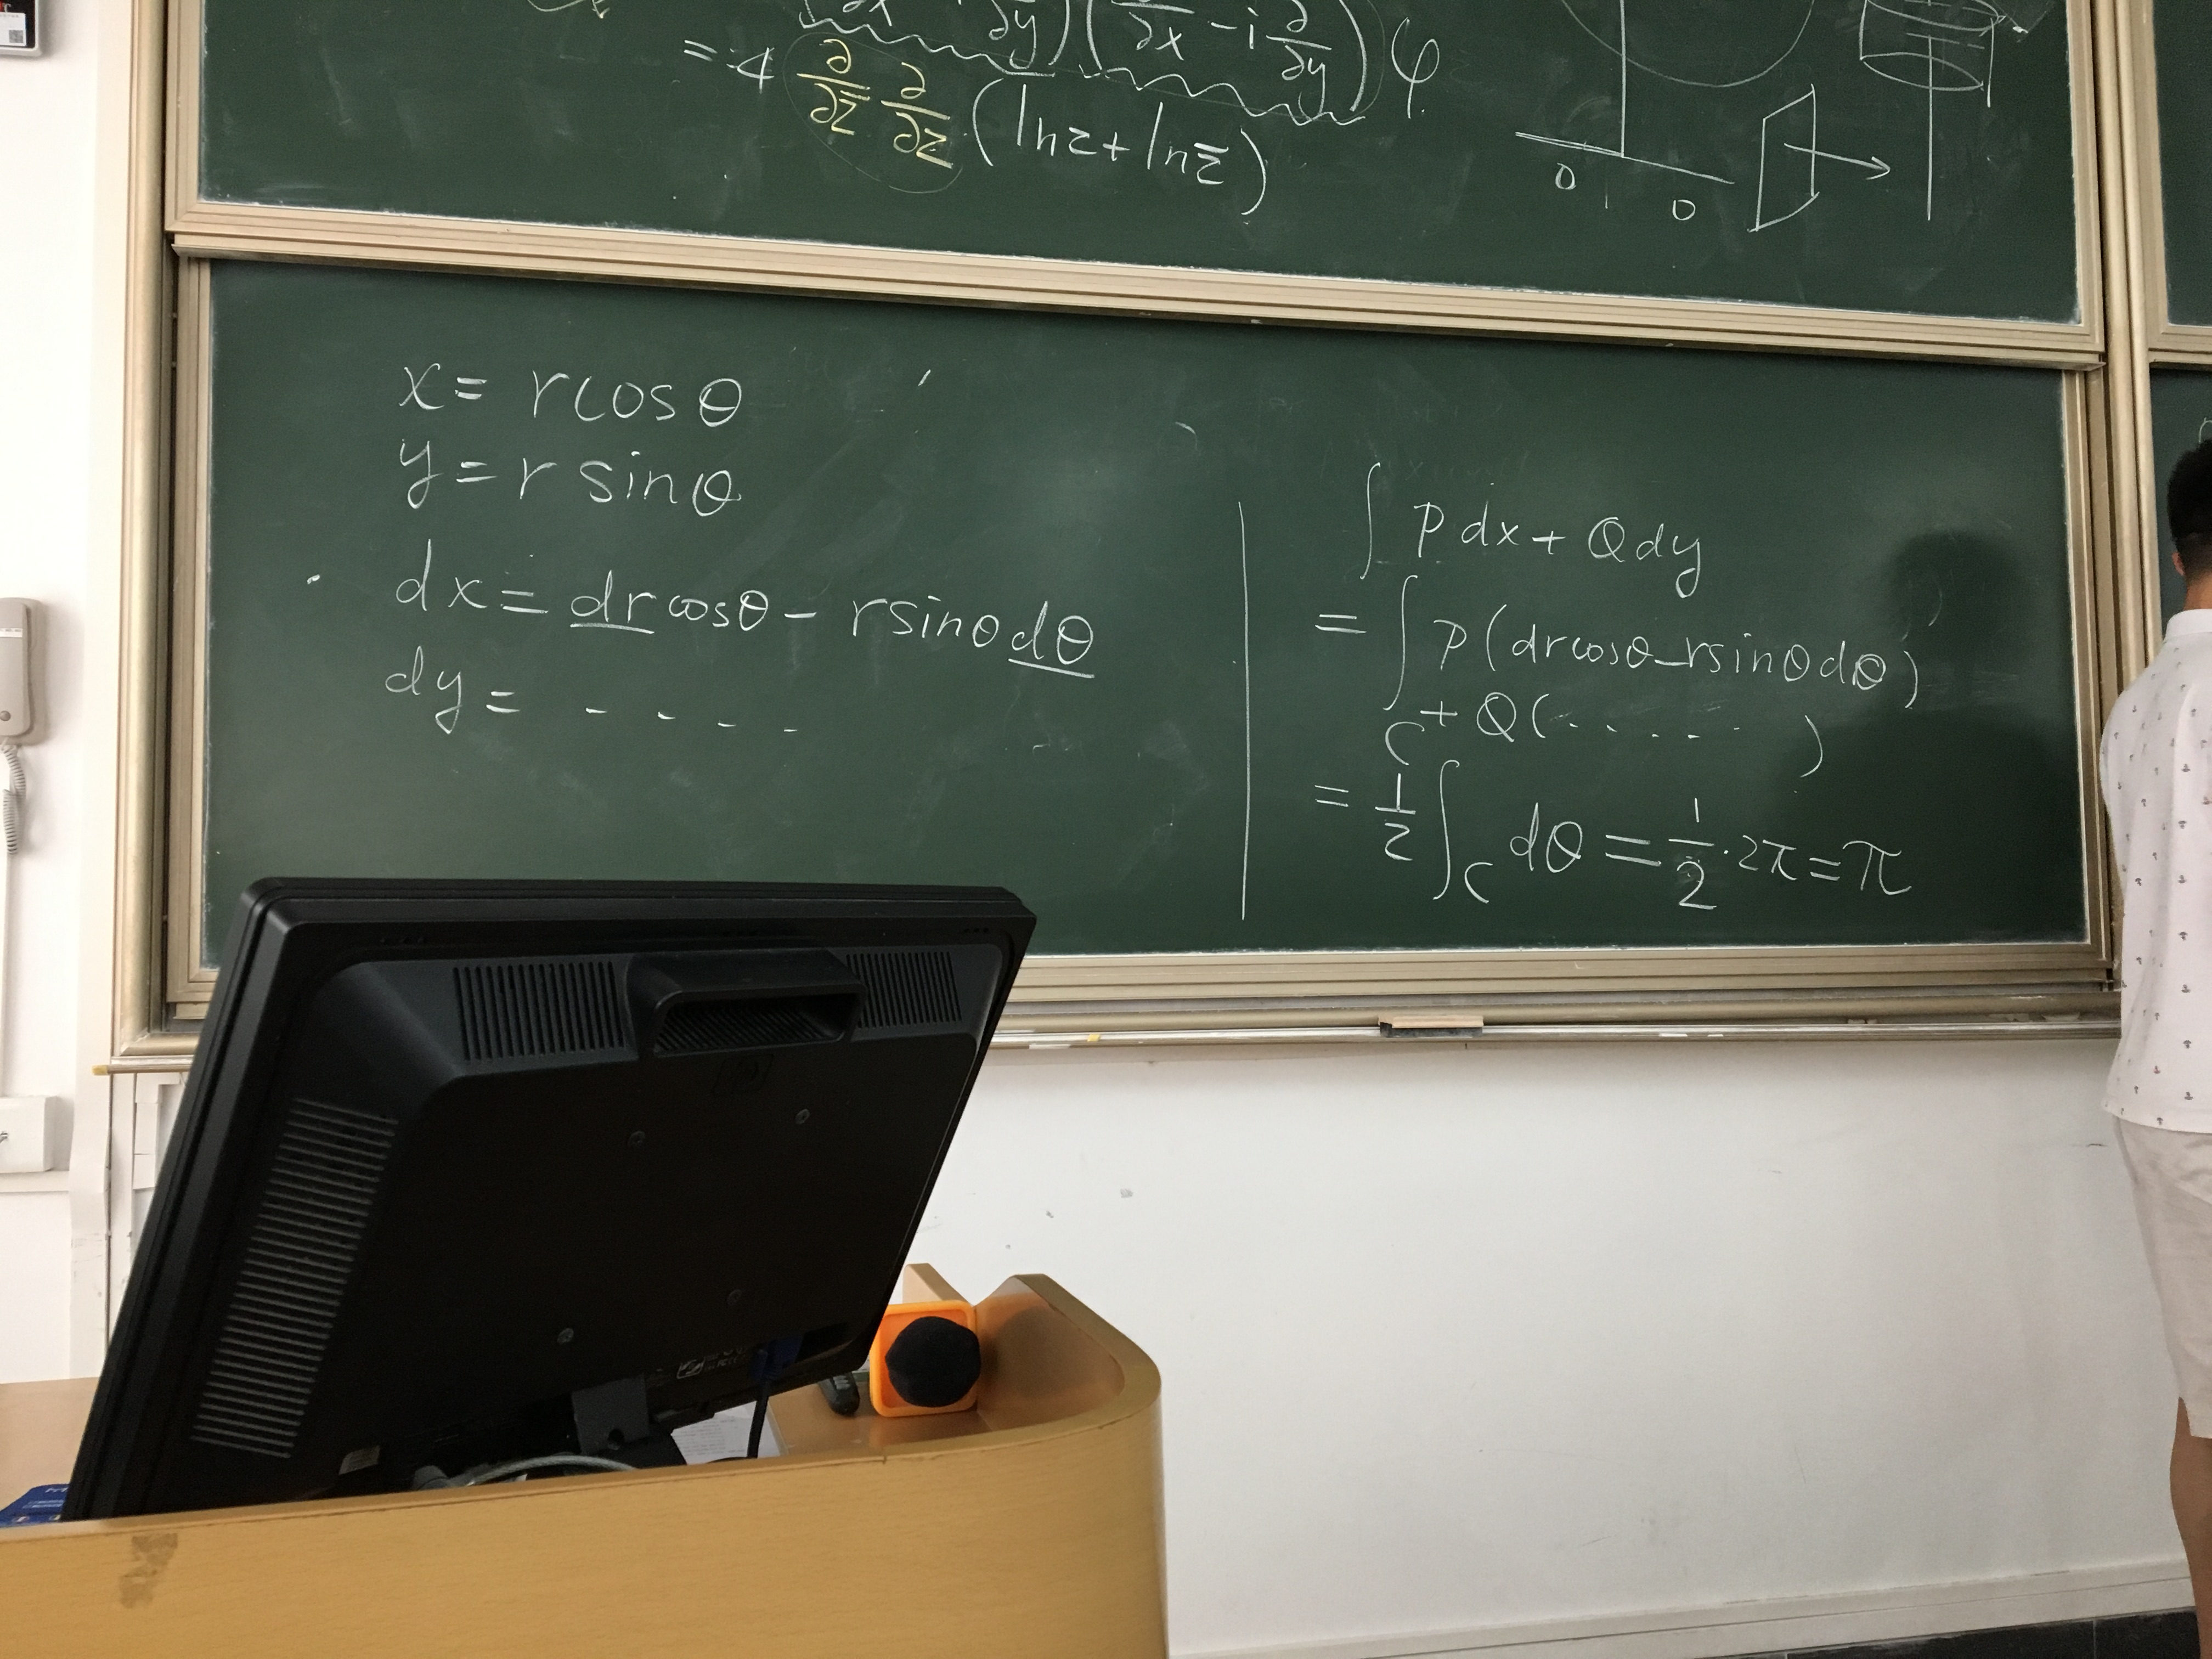 ∂y)(∂x - i ∂/∂y)φ
= 4 ∂/∂z̄ ∂/∂z (ln z + ln z̄)
0
0
x = r cos θ
y = r sin θ
dx = dr cos θ - r sin θ dθ
dy = - - - -
∫ P dx + Q dy
= ∫_C P (dr cos θ - r sin θ dθ)
+ Q (. . . . . )
= 1/2 ∫_C dθ = 1/2 · 2π = π